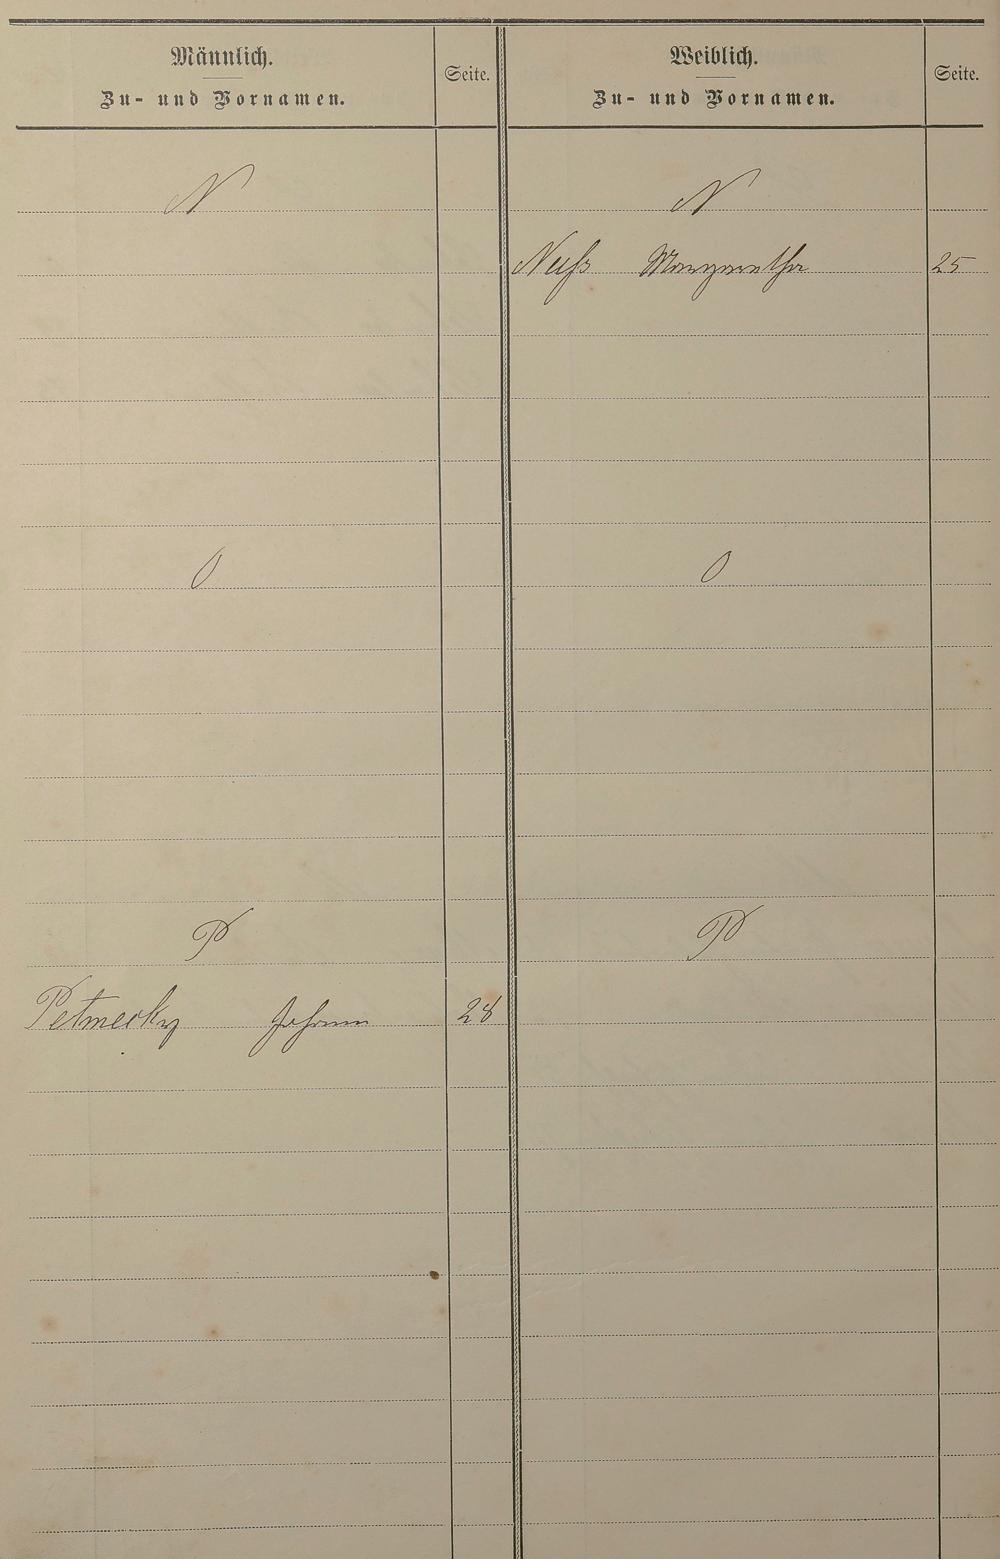 Männlich.
Zu- und Vornamen.
Seite.
Weiblich.
Zu- und Vornamen.
Seite.
N
N
Nuß Margaretha 25
O
O
P
P
Petmecky Johann 28